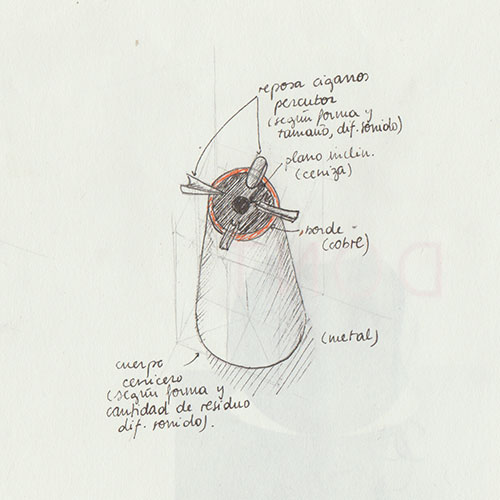 reposa ciganos
percutor
(según forma y
tamaño, dif. sonido)
plano inclin.
(ceniza)
borde
(cobre)
(metal)
cuerpo
cenicero
(según forma y
cantidad de residuo
dif. sonido).